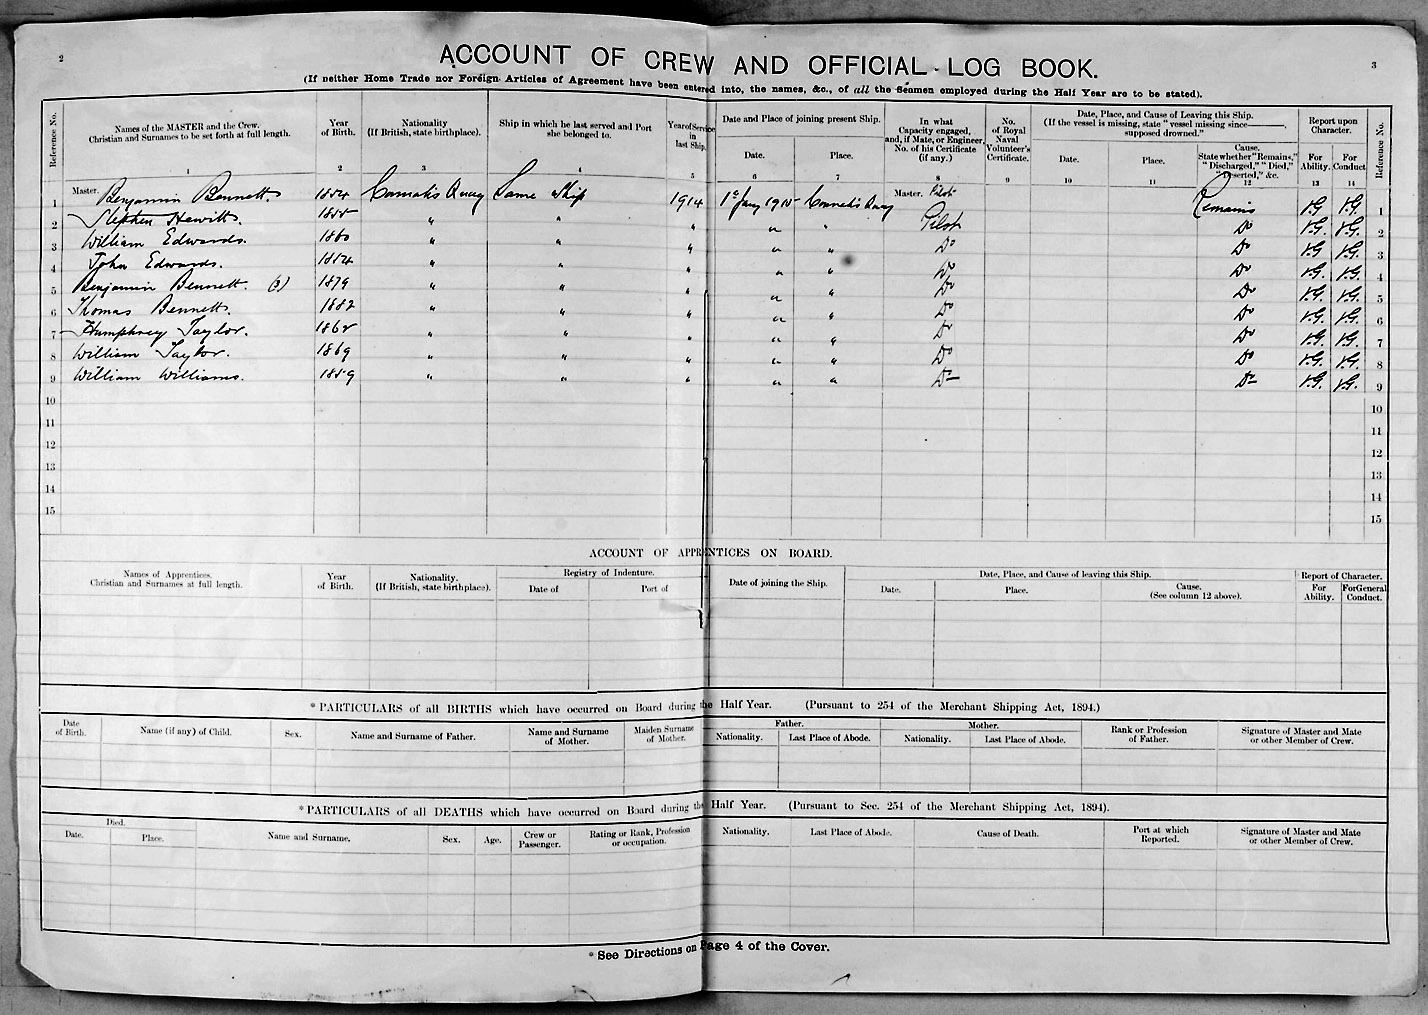 2
3
ACCOUNT OF CREW AND OFFICIAL LOG BOOK.
(If neither Home Trade nor Foreign Articles of Agreement have been entered into, the names, &c., of all the Seamen employed during the Half Year are to be stated).
Reference No. | Names of the MASTER and the Crew. Christian and Surnames to be set forth at full length. | Year of Birth. | Nationality (If British, state birthplace). | Ship in which he last served and Port she belonged to. | Year of Service in last Ship. | Date and Place of joining present Ship. Date. Place. | In what Capacity engaged, and, if Mate, or Engineer, No. of his Certificate (if any.) | No. of Royal Naval Volunteer's Certificate. | Date, Place, and Cause of Leaving this Ship. (If the vessel is missing, state "vessel missing since———, supposed drowned." Date. Place. Cause. State whether "Remains," "Discharged," "Died," "Deserted," &c. | Report upon Character. For Ability. For Conduct | Reference No.
1 2 3 4 5 6 7 8 9 10 11 12 13 14
1 Master. Benjamin Bennett 1854 Connah's Quay Same Ship 1914 1st Jany 1915 Connah's Quay Master. Pilot Remains V.G. V.G. 1
2 Stephen Hewitt. 1855 " " " " " Pilot Do V.G. V.G. 2
3 William Edwards. 1860 " " " " " Do Do V.G. V.G. 3
4 John Edwards. 1854 " " " " " Do Do V.G. V.G. 4
5 Benjamin Bennett. (2) 1879 " " " " " Do Do V.G. V.G. 5
6 Thomas Bennett. 1882 " " " " " Do Do V.G. V.G. 6
7 Humphrey Taylor. 1862 " " " " " Do Do V.G. V.G. 7
8 William Taylor. 1869 " " " " " Do Do V.G. V.G. 8
9 William Williams. 1859 " " " " " Do Do V.G. V.G. 9
10 10
11 11
12 12
13 13
14 14
15 15
ACCOUNT OF APPRENTICES ON BOARD.
Names of Apprentices. Christian and Surnames at full length. | Year of Birth. | Nationality. (If British, state birthplace). | Registry of Indenture. Date of Port of | Date of joining the Ship. | Date, Place, and Cause of leaving this Ship. Date. Place. Cause. (See column 12 above). | Report of Character. For Ability. For General Conduct.
*PARTICULARS of all BIRTHS which have occurred on Board during the Half Year. (Pursuant to 254 of the Merchant Shipping Act, 1894.)
Date of Birth. | Name (if any) of Child. | Sex. | Name and Surname of Father. | Name and Surname of Mother. | Maiden Surname of Mother. | Father. Nationality. Last Place of Abode. | Mother. Nationality. Last Place of Abode. | Rank or Profession of Father. | Signature of Master and Mate or other Member of Crew.
*PARTICULARS of all DEATHS which have occurred on Board during the Half Year. (Pursuant to Sec. 254 of the Merchant Shipping Act, 1894).
Died. Date. Place. | Name and Surname. | Sex. | Age. | Crew or Passenger. | Rating or Rank, Profession or occupation. | Nationality. | Last Place of Abode. | Cause of Death. | Port at which Reported. | Signature of Master and Mate or other Member of Crew.
*See Directions on Page 4 of the Cover.